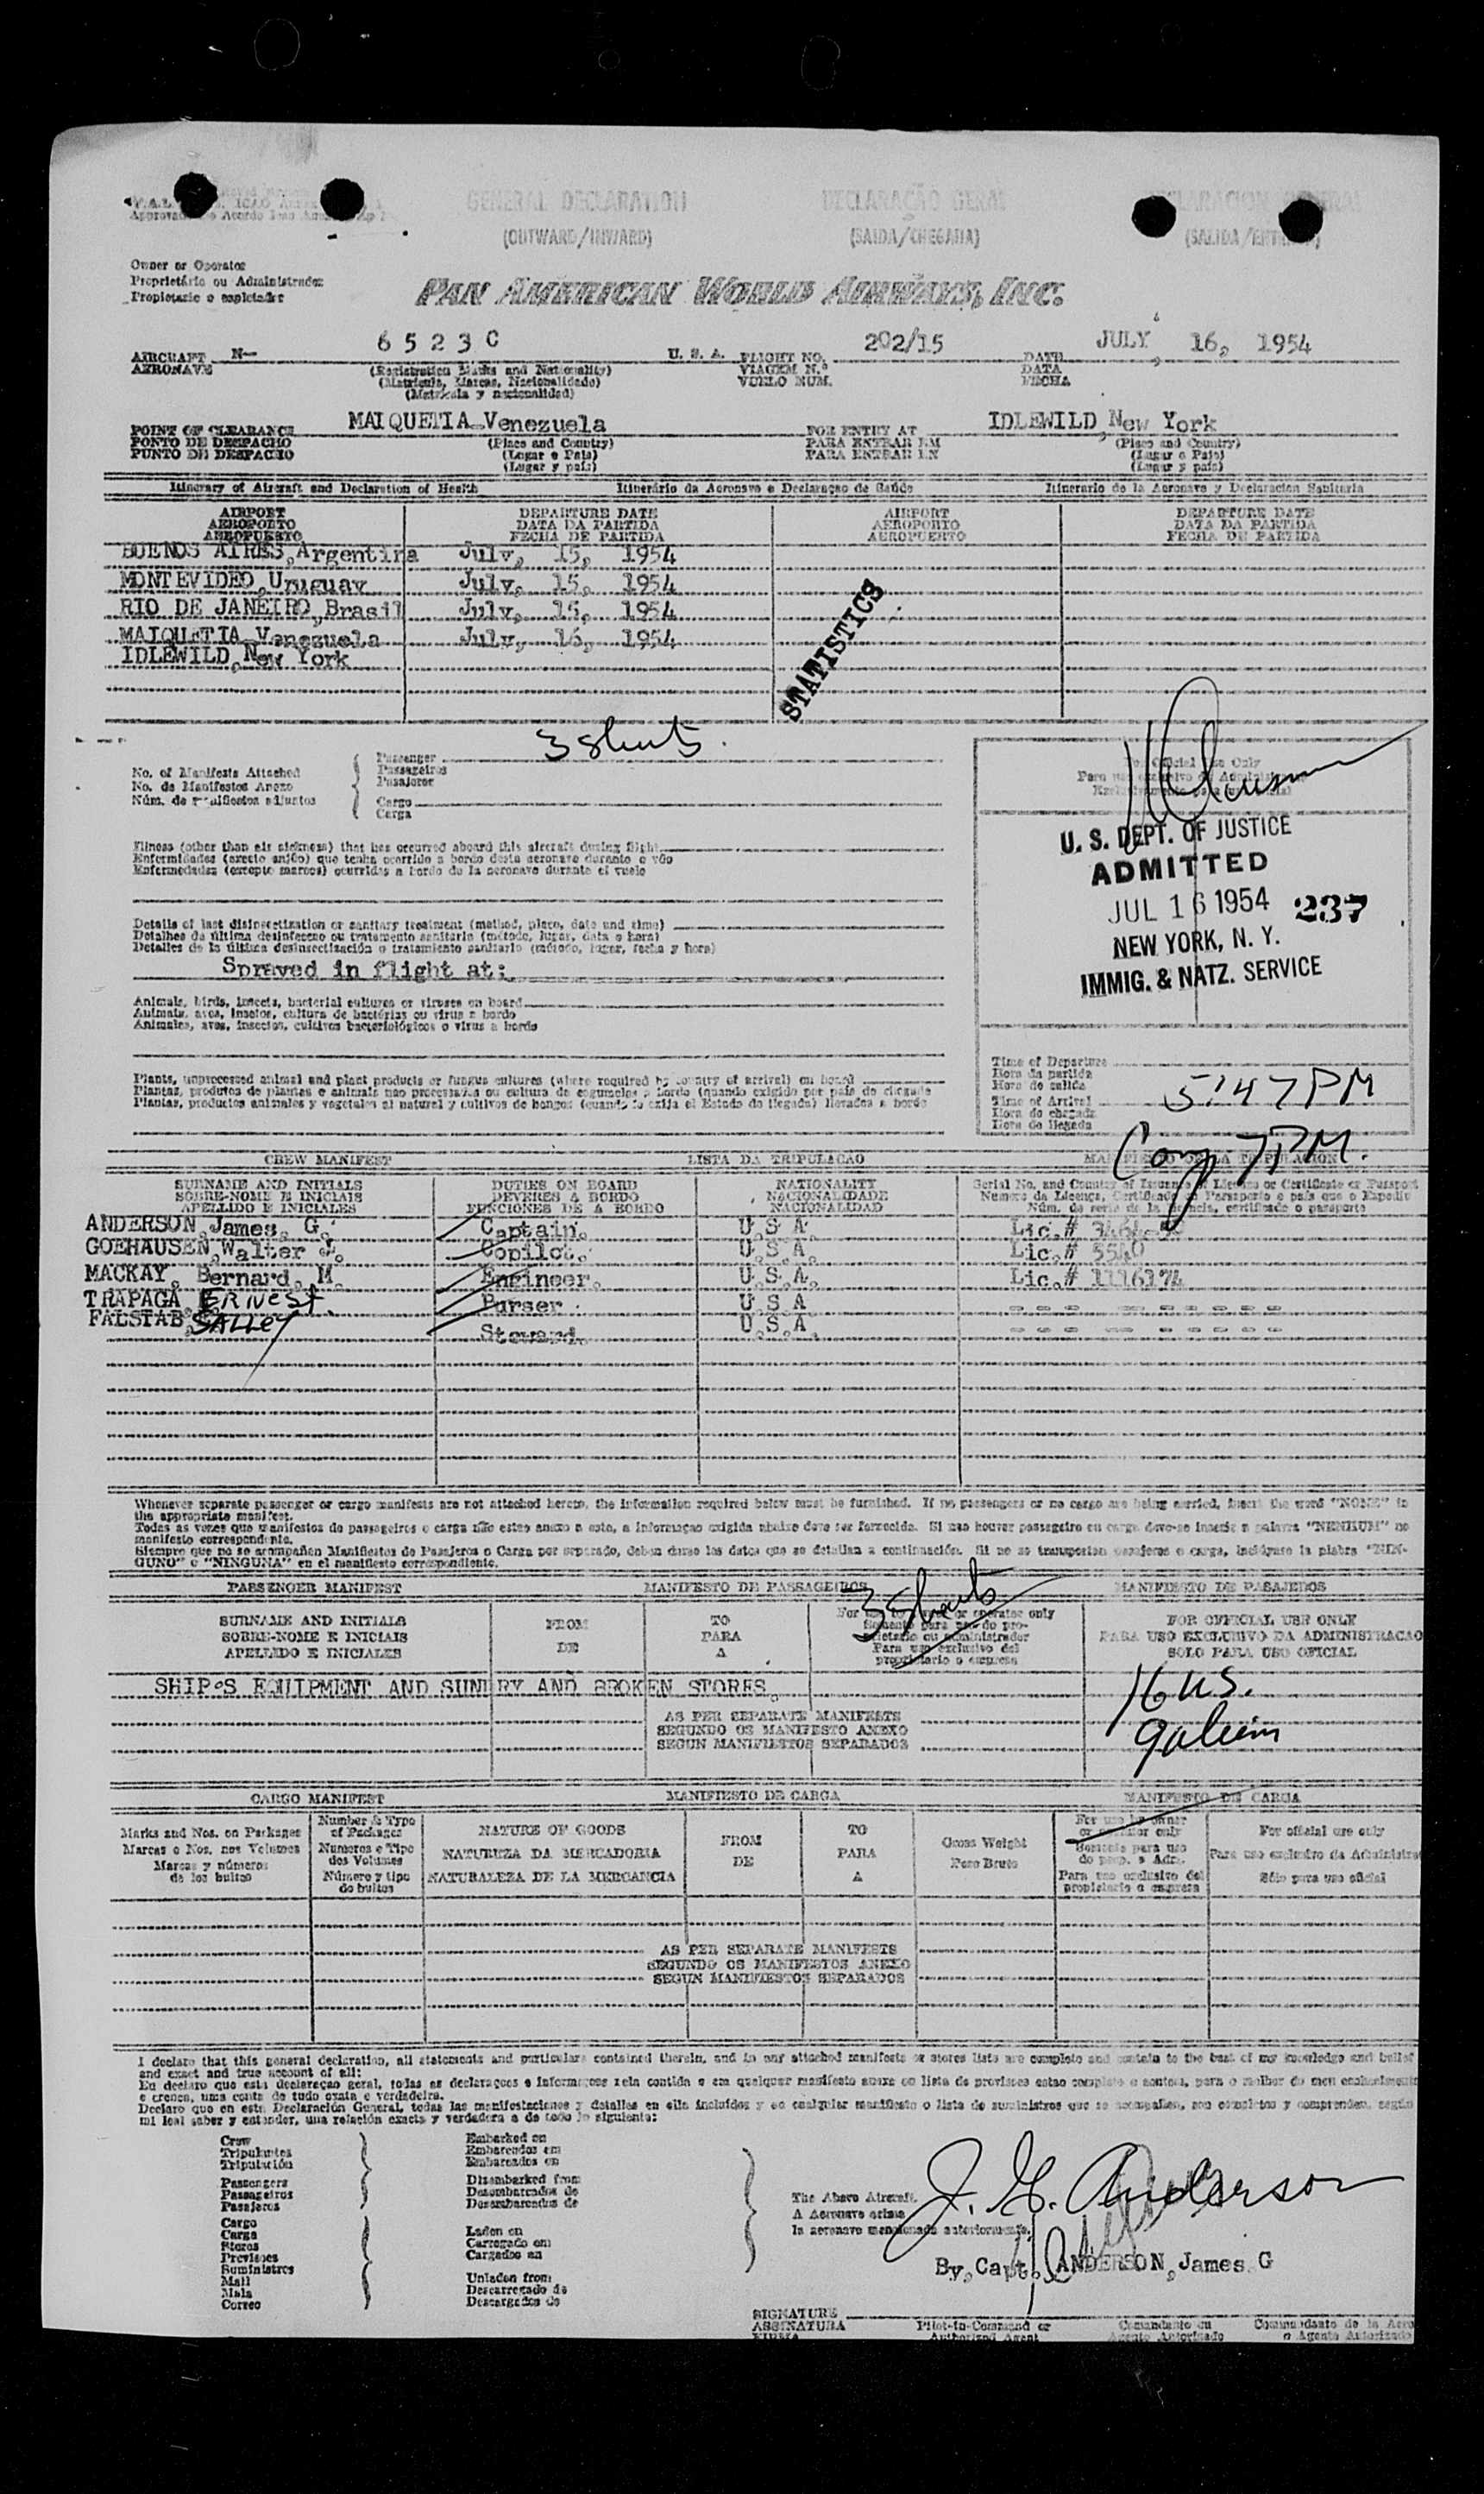 GENERAL DECLARATION DECLARAÇÃO GERAL
(OUTWARD/INWARD) (SAIDA/CHEGADA) (SALIDA/
Owner or Operator
Proprietário ou Administrador
Propietario o explotador
PAN AMERICAN WORLD AIRWAYS, INC.
AIRCRAFT N- 6523C U. S. A. FLIGHT NO. 202/15 DATE JULY, 16, 1954
AERONAVE (Registration Marks and Nationality) VIAGEM N.º DATA
(Matricula, Marcas, Nacionalidade) VUELO NUM. FECHA
(Matricula y nacionalidad)
POINT OF CLEARANCE MAIQUETIA Venezuela FOR ENTRY AT IDLEWILD, New York
PONTO DE DESPACHO (Place and Country) PARA ENTRAR EM (Place and Country)
PUNTO DE DESPACHO (Lugar e Pais) PARA ENTRAR EN (Lugar e Pais)
(Lugar y país) (Lugar y país)
Itinerary of Aircraft and Declaration of Health Itinerário da Aeronave e Declaraçao de Saúde Itinerario de la Aeronave y Declaracion Sanitaria
AIRPORT DEPARTURE DATE AIRPORT DEPARTURE DATE
AEROPORTO DATA DA PARTIDA AEROPORTO DATA DA PARTIDA
AEROPUERTO FECHA DE PARTIDA AEROPUERTO FECHA DE PARTIDA
BUENOS AIRES, Argentina July, 15, 1954
MONTEVIDEO, Uruguay July, 15, 1954
RIO DE JANEIRO, Brasil July, 15, 1954
MAIQUETIA Venezuela July, 16, 1954
IDLEWILD, New York
STATISTICS
3 sheets
No. of Manifests Attached Passenger
No. de Manifestos Anexo Passageiros
Núm. de manifiestos adjuntos Pasajeros
Cargo
Carga
For Official Use Only
U. S. DEPT. OF JUSTICE
ADMITTED
JUL 16 1954 237
NEW YORK, N. Y.
IMMIG. & NATZ. SERVICE
Illness (other than air sickness) that has occurred aboard this aircraft during flight
Enfermidades (exceto anjôo) que tenha ocorrido a bordo desta aeronave durante o vôo
Enfermedades (excepto mareos) ocurridas a bordo de la aeronave durante el vuelo
Details of last disinsectization or sanitary treatment (method, place, date and time)
Detalhes da última desinfeccao ou tratamento sanitario (método, lugar, data e hora)
Detalles de la última desinsectización o tratamiento sanitario (método, lugar, fecha y hora)
Sprayed in flight at:
Animals, birds, insects, bacterial cultures or viruses on board
Animais, aves, insetos, cultura de bactérias ou virus a bordo
Animales, aves, insectos, cultivos bacteriológicos o virus a bordo
Plants, unprocessed animal and plant products or fungus cultures (where required by country of arrival) on board
Plantas, produtos de plantas e animais nao processados ou cultura de cogumelos a bordo (quando exigido por pais de chegada
Plantas, productos animales y vegetales al natural y cultivos de hongos (cuando lo exija el Estado de llegada) llevados a bordo
Time of Departure
Hora da partida
Hora de salida
Time of Arrival 5:47 PM
Hora de chegada
Hora de llegada
7 PM.
CREW MANIFEST LISTA DA TRIPULACAO
SURNAME AND INITIALS DUTIES ON BOARD NATIONALITY
SOBRE-NOME E INICIAIS DEVERES A BORDO NACIONALIDADE
APELLIDO E INICIALES FUNCIONES DE A BORDO NACIONALIDAD
ANDERSON, James, G. Captain. U.S.A. Lic.#
GOEHAUSEN, Walter J. Copilot. U.S.A. Lic.# 5540
MACKAY, Bernard, M. Engineer. U.S.A. Lic.# 1116174
TRAPAGA, ERNEST. Purser. U.S.A
FALSTAB, SALLEY Steward. U.S.A.
Whenever separate passenger or cargo manifests are not attached hereto, the information required below must be furnished. If no passengers or no cargo are being carried, insert the word "NONE" in
the appropriate manifest.
Todas as vezes que manifestos de passageiros e carga não estao anexo a este, a informaçao exigida abaixo deve ser fornecida. Si nao houver passageiro ou carga deve-se inserir a palavra "NENHUM" no
manifesto correspondente.
Siempre que no se acompañen Manifiestos de Pasajeros o Carga por separado, deben darse los datos que se detallan a continuación. Si no se transportan pasajeros o carga, inclúyase la plabra "NIN-
GUNO" o "NINGUNA" en el manifiesto correspondiente.
PASSENGER MANIFEST MANIFESTO DE PASSAGEIROS MANIFIESTO DE PASAJEROS
3 Sheets
SURNAME AND INITIALS FROM TO FOR OFFICIAL USE ONLY
SOBRE-NOME E INICIAIS DE PARA PARA USO EXCLUSIVO DA ADMINISTRACAO
APELLIDO E INICIALES A SOLO PARA USO OFICIAL
SHIP'S EQUIPMENT AND SUNDRY AND BROKEN STORES. 16 US.
AS PER SEPARATE MANIFESTS
SEGUNDO OS MANIFESTO ANEXO
SEGUN MANIFIESTOS SEPARADOS
CARGO MANIFEST MANIFIESTO DE CARGA MANIFIESTO DE CARGA
Marks and Nos. on Packages Number & Type of Packages NATURE OF GOODS FROM TO Gross Weight For use by owner or operator only For official use only
Marcas e Nos. nos Volumes Numeros e Tipo dos Volumes NATUREZA DA MERCADORIA DE PARA Peso Bruto
Marcas y números de los bultos Número y tipo de bultos NATURALEZA DE LA MERCANCIA A Para uso exclusivo del propietario o empresa Sólo para uso oficial
AS PER SEPARATE MANIFESTS
SEGUNDO OS MANIFESTOS ANEXO
SEGUN MANIFIESTOS SEPARADOS
I declare that this general declaration, all statements and particulars contained therein, and in any attached manifests or stores lists are complete and contain to the best of my knowledge and belief
and exact and true account of all:
Eu declaro que esta declaraçao geral, todas as declaraçoes e informaçoes nela contida e em qualquer manifesto anexo ou lista de provisoes estao completo e contem, para o melhor do meu conhecimento
e crenca, uma conta de tudo exata e verdadeira.
Declaro que en esta Declaración General, todas las manifestaciones y detalles en ella incluídos y en cualquier manifiesto o lista de suministros que se acompañen, son completos y comprenden, según
mi leal saber y entender, una relación exacta y verdadera de todo lo siguiente:
Crew Embarked on
Tripulantes Embarcados em
Tripulación Embarcados en
Passengers Disembarked from
Passageiros Desembarcados de
Pasajeros Desembarcados de
Cargo
Carga Laden on
Stores Carregado em
Provisoes Cargados en
Suministros
Mail Unladen from
Mala Descarregado de
Correo Descargados de
The Above Aircraft.
A Aeronave acima
la aeronave mencionada anteriormente.
J. G. Anderson
By, Capt. ANDERSON, James. G
SIGNATURE
ASSINATURA Pilot-in-Command or Comandante ou Commandante de la Aero
FIRMA Authorized Agent Agente Autorizado o Agente Autorizado